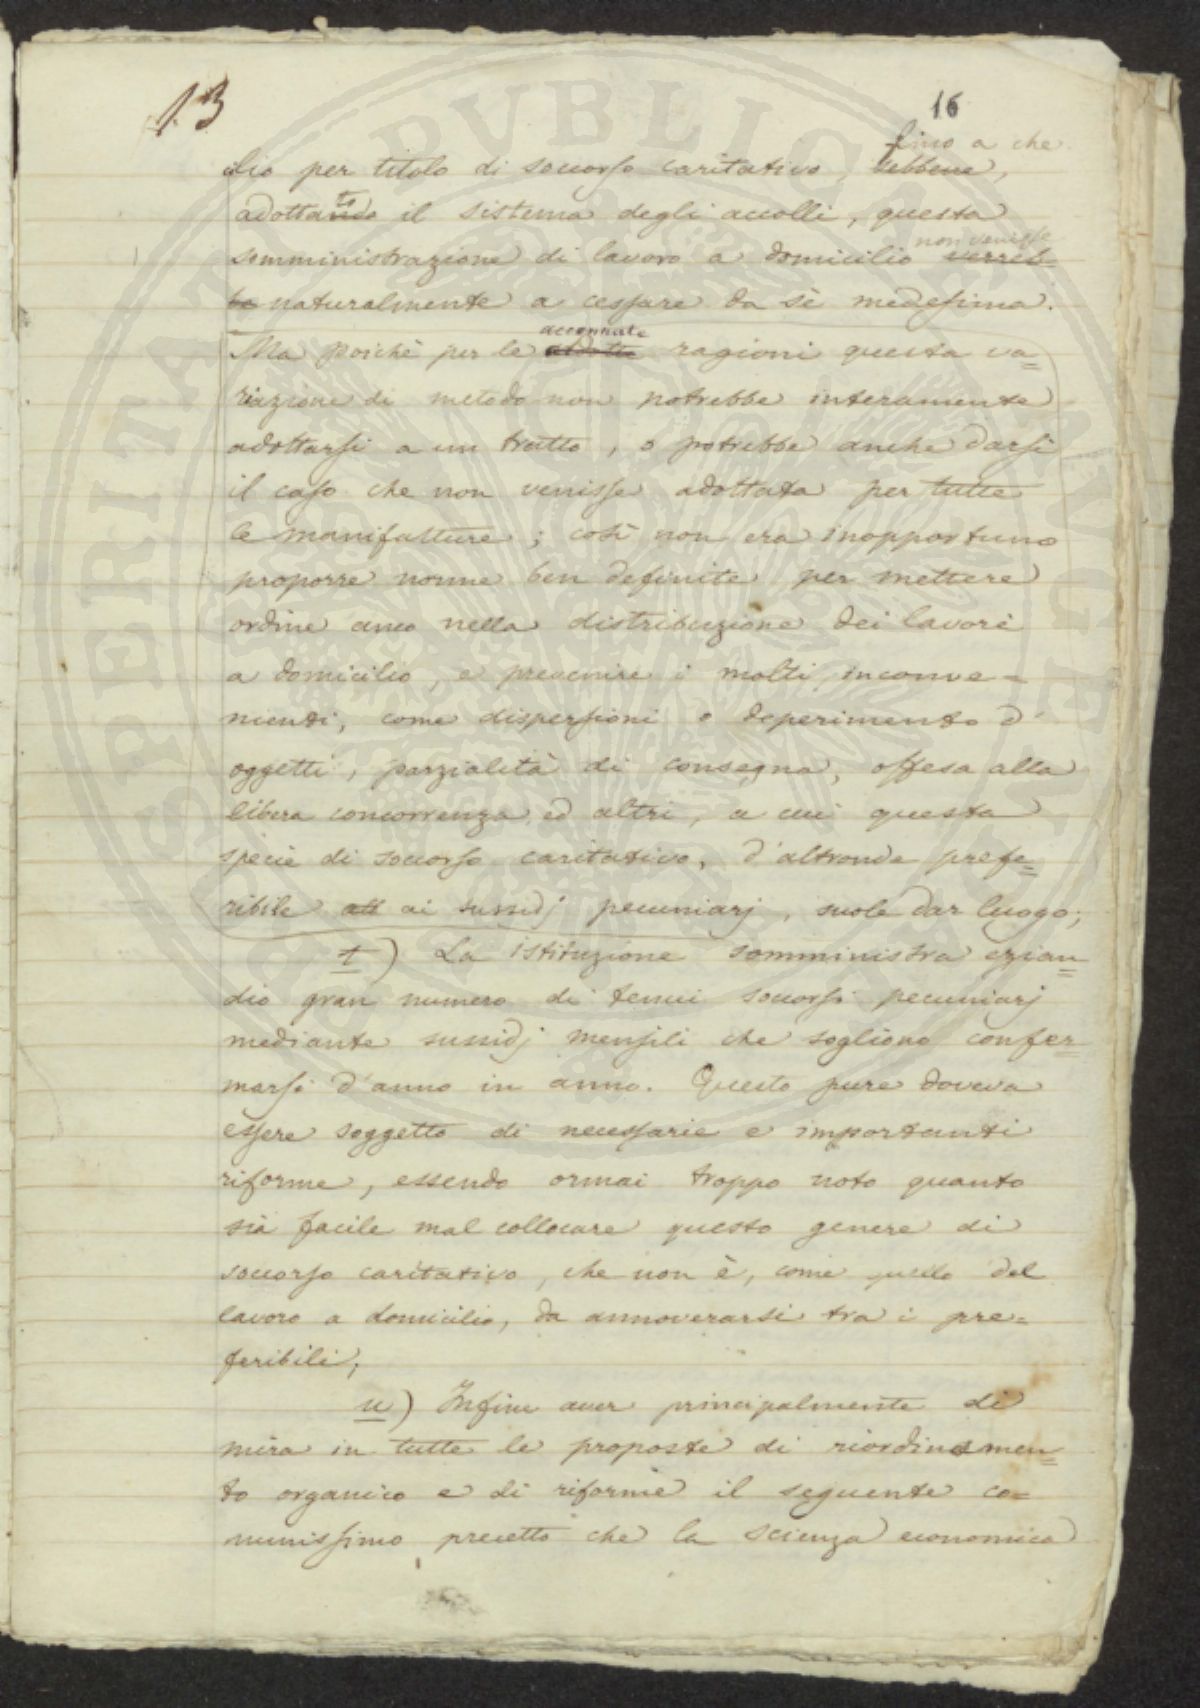 13
16
fino a che
dio per titolo di soccorso caritativo, sebbene,
to
adottando il sistema degli accolli, questa
non venisse
somministrazione di lavoro a domicilio verreb-
be naturalmente a cessare da sè medesima.
accennate
Ma poichè per le addotte ragioni questa va=
riazione di metodo non potrebbe interamente
adottarsi a un tratto, o potrebbe anche darsi
il caso che non venisse adottata per tutte
le manifatture; così non era inopportuno
proporre norme ben definite per mettere
ordine anco nella distribuzione dei lavori
a domicilio, e prevenire i molti inconve=
nienti, come dispersioni o deperimento d'
oggetti, parzialità di consegna, offesa alla
libera concorrenza ed altri, a cui questa
specie di soccorso caritativo, d'altronde prefe=
ribile ai sussidj pecuniarj, suole dar luogo;
t) La istituzione somministra ezian=
dio gran numero di tenui soccorsi pecuniarj
mediante sussidj mensili che sogliono confer=
marsi d'anno in anno. Questo pure doveva
essere soggetto di necessarie e importanti
riforme, essendo ormai troppo noto quanto
sia facile mal collocare questo genere di
soccorso caritativo, che non è, come quello del
lavoro a domicilio, da annoverarsi tra i pre=
feribili;
u) Infine aver principalmente di
mira in tutte le proposte di riordinamen=
to organico e di riforme il seguente co=
munissimo precetto che la scienza economica